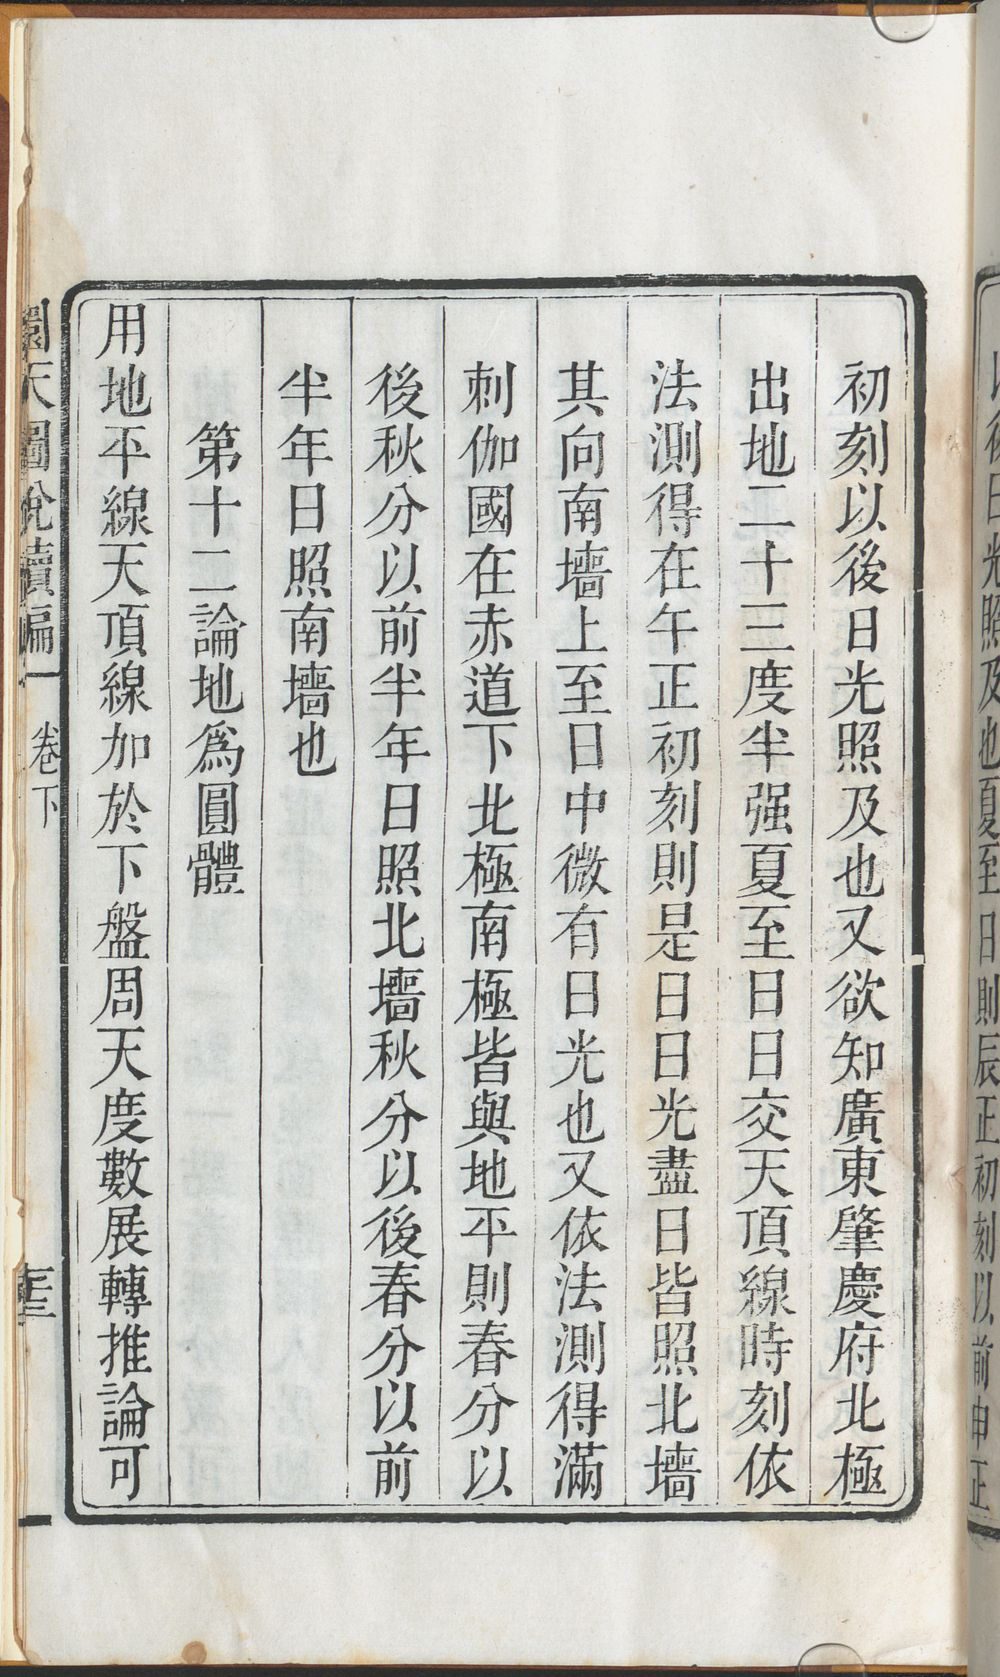 初刻以後日光照及也又欲知廣東肇慶府北極
出地二十三度半强夏至日日交天頂線時刻依
法測得在午正初刻則是日日光盡日皆照北墻
其向南墻上至日中微有日光也又依法測得滿
刺伽國在赤道下北極南極皆與地平則春分以
後秋分以前半年日照北墻秋分以後春分以前
半年日照南墻也
第十二論地爲圓體
用地平線天頂線加於下盤周天度數展轉推論可
圜天圖說續編
卷下
後日光照及也夏至日則辰正初刻以前申正